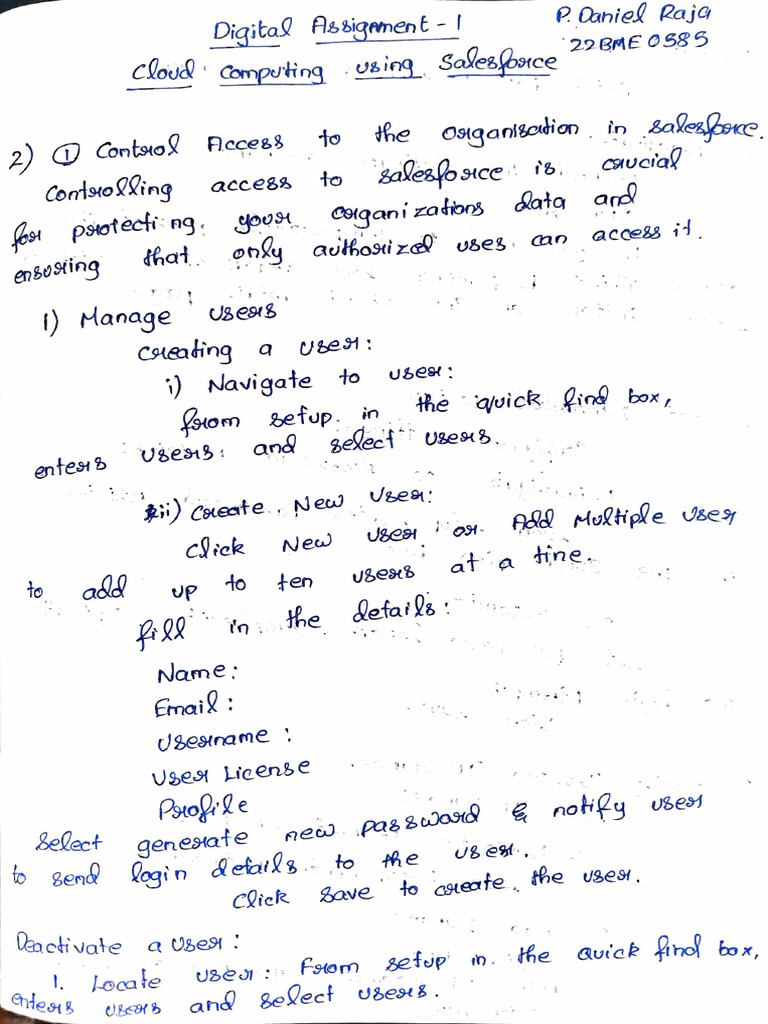 Digital Assignment - 1
P. Daniel Raja
22BME0585
Cloud Computing using Salesforce
2) ① Control Access to the organisation in salesforce.
Controlling access to salesforce is crucial
for protecting your organizations data and
ensuring that only authorized uses can access it.
1) Manage users
Creating a user:
i) Navigate to user:
from setup in the quick find box,
enters users and select users.
ii) Create New User:
Click New user or Add Multiple user
to add up to ten users at a tine.
fill in the details:
Name:
Email:
Username:
User License
Profile
Select generate new password & notify user
to send login details to the user.
Click save to create the user.
Deactivate a user:
1. Locate user: From setup in the quick find box,
enters users and select users.